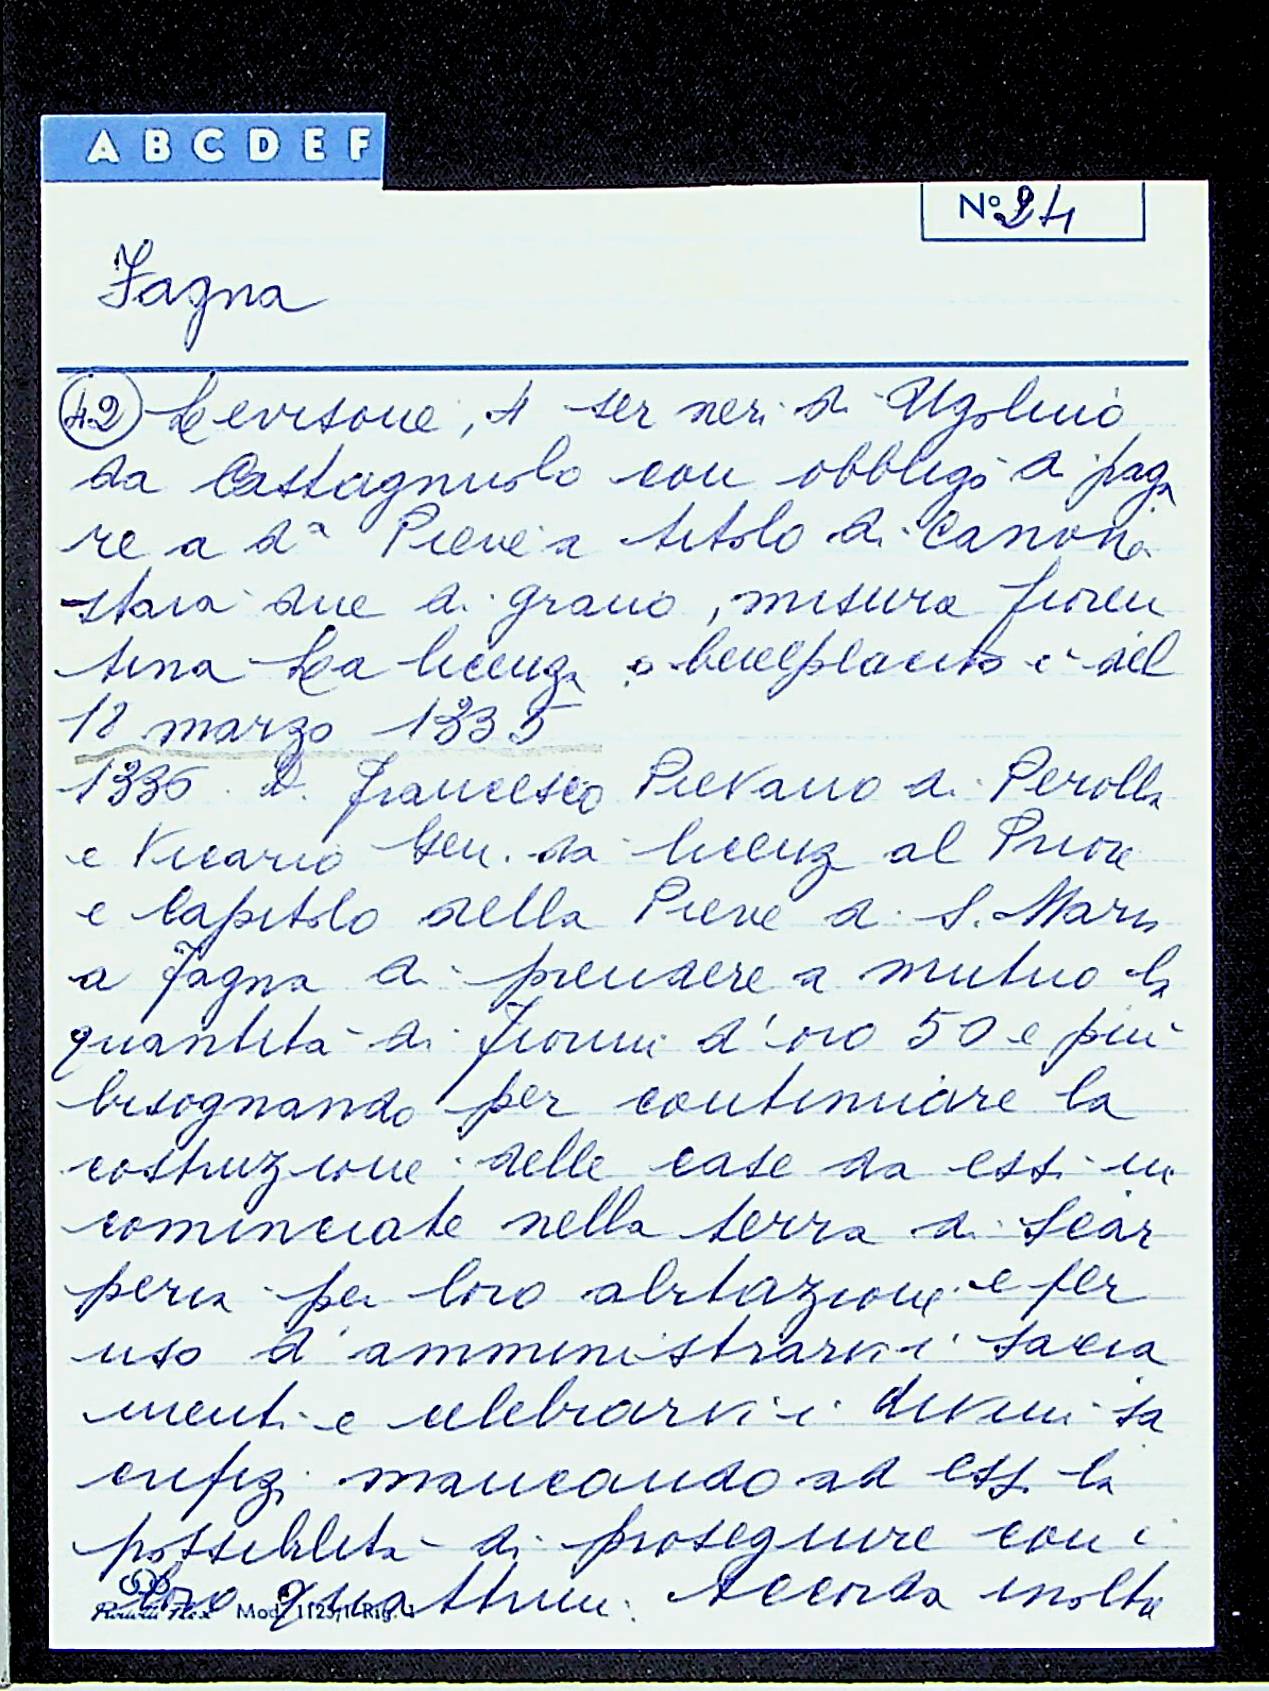 A B C D E F
Nº 24
Fagna
42 Levisone, A ser Neri di Ugolino
da Castagnuolo con obbligo di paga
re a dª Pieve a titolo di Canone
staia due di grano, misura fioren
tina La licenza o beneplacito è del
18 marzo 1335
1336. D. Francesco Pievano di Perolla
e Vicario Gen. da licenza al Priore
e Capitolo della Pieve di S. Maria
a Fagna di prendere a mutuo la
quantità di Fiorini d'oro 50 e più
bisognando per continuare la
costruzione delle case da essi in
cominciate nella terra di Scar
peria per loro abitazione e per
uso d'amministrarvi i sacra
menti e celebrarvi i divini sa
crifizi mancando ad essi la
possibilità di proseguire con i
loro quattrini. Accorda inoltre
Mod. 1125/1 Rig. 1